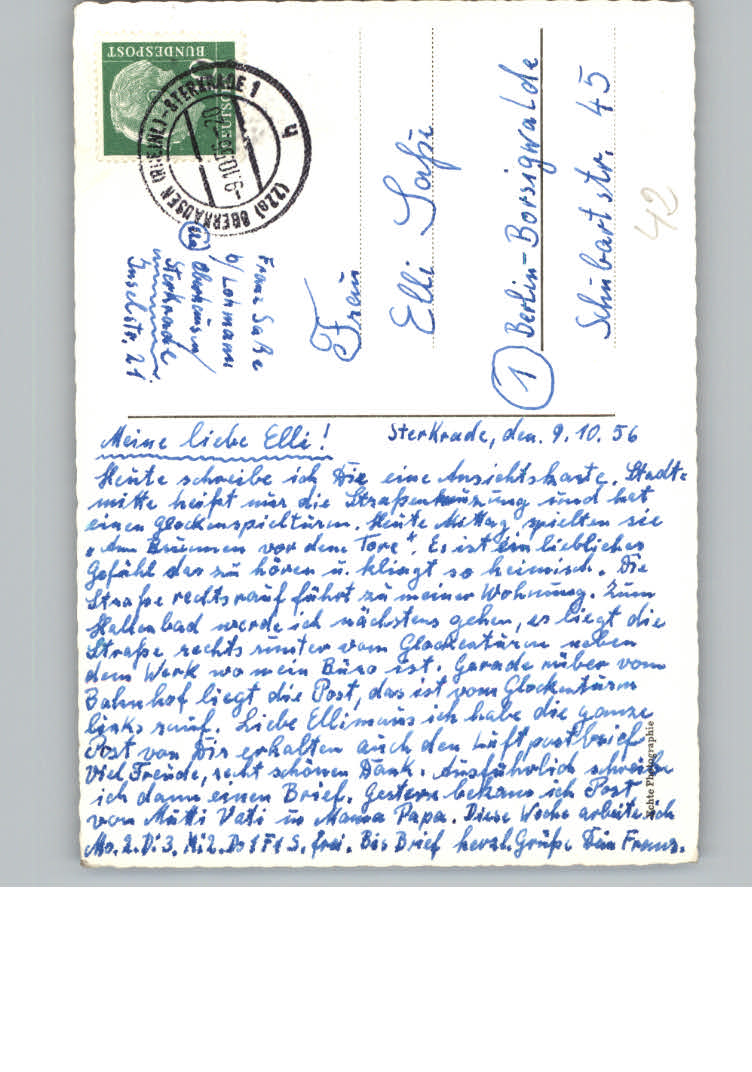 BUNDESPOST
(22a) OBERHAUSEN (RHEINL) - STERKRADE 1
-9.10.56-20
u
Franz Saße
b/ Lohmann
22a Oberhausen/
Sterkrade
Inselstr. 21
Frau
Elli Saße
1 Berlin-Borsigwalde
Schubartstr. 45
42
Meine liebe Elli!
Sterkrade, den. 9.10.56
Heute schreibe ich Dir eine Ansichtskarte. Stadt-
mitte heißt nur die Straßenkreuzung und hat
einen Glockenspielturm. Heute Mittag spielten sie
"Am Brunnen vor dem Tore". Es ist ein liebliches
Gefühl das zu hören u. klingt so heimisch. Die
Straße rechts rauf führt zu meiner Wohnung. Zum
Hallenbad werde ich nächstens gehen, es liegt die
Straße rechts runter vom Glockenturm neben
dem Werk wo mein Büro ist. Gerade rüber vom
Bahnhof liegt die Post, das ist vom Glockenturm
links rauf. Liebe Ellimaus ich habe die ganze
Post von Dir erhalten auch den Luftpostbrief
viel Freude, recht schönen Dank. Ausführlich schreibe
ich dann einen Brief. Gestern bekam ich Post
von Mutti Vati u Mama Papa. Diese Woche arbeite ich
Mo. 2. Di 3. Mi 2. Do 1 F 1 S. frei. Bis Brief herzl. Grüße Dein Franz.
Echte Photographie